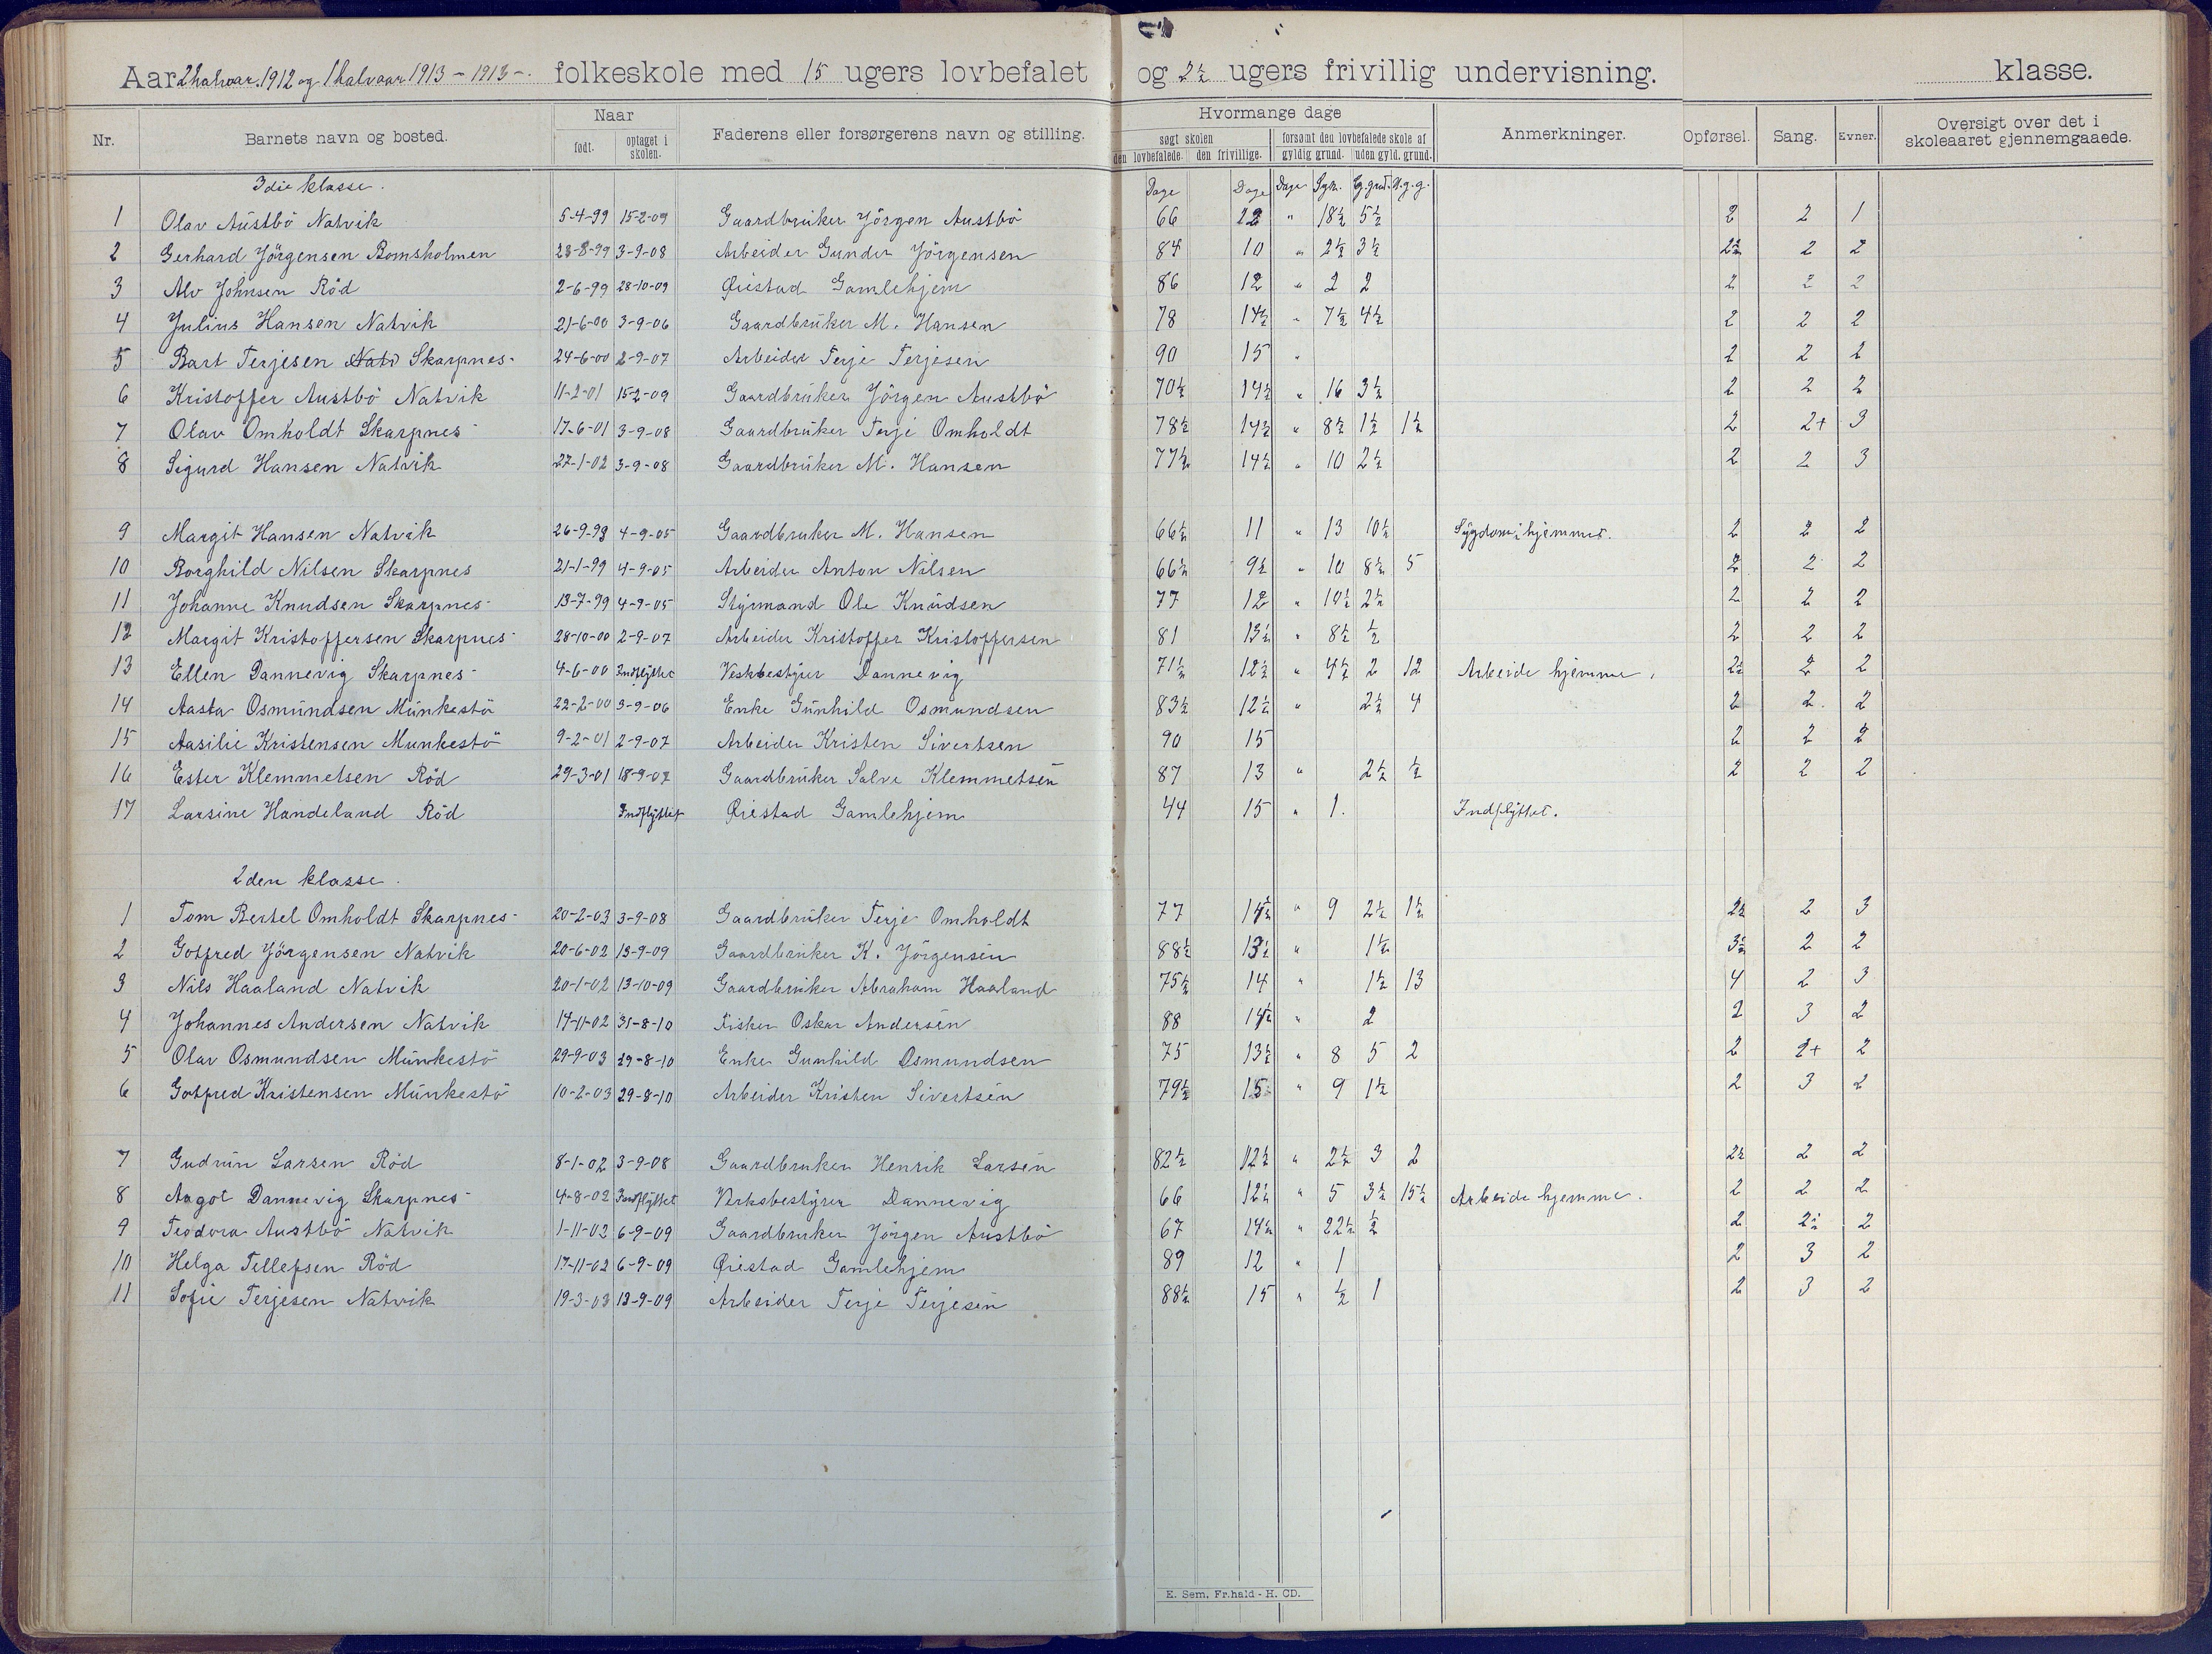 Aar 2 halvaar. 1912 og 1 halvaar 1913 - 1913 -. folkeskole med 15 ugers lovbefalet og 2½ ugers frivillig undervisning. klasse.
Nr. Barnets navn og bosted. Naar født. optaget i skolen. Faderens eller forsørgerens navn og stilling. Hvormange dage søgt skolen den lovbefalede. den frivillige. forsømt den lovbefalede skole af gyldig grund. uden gyld. grund. Anmerkninger. Opførsel. Sang. Evner. Oversigt over det i skoleaaret gjennemgaaede.
3die klasse. Dage Dage Dage Syk. G.grd. U.g.g.
1 Olav Austbö Natvik 5-4-99 15-2-09 Gaardbruker Jörgen Austbö 66 12 " 18½ 5½ 2 2 1
2 Gerhard Jörgensen Bomsholmen 23-8-99 3-9-08 Arbeider Gunder Jörgensen 84 10 " 2½ 3½ 2½ 2 2
3 Alv Johnsen Röd 2-6-99 28-10-09 Øiestad Gamlehjem 86 12 " 2 2 2 2 2
4 Julius Hansen Natvik 21-6-00 3-9-06 Gaardbruker M. Hansen 78 14½ " 7½ 4½ 2 2 2
5 Bart Terjesen Natv Skarpnes- 24-6-00 2-9-07 Arbeider Terje Terjesen 90 15 " 2 2 2
6 Kristoffer Austbö Natvik 11-2-01 15-2-09 Gaardbruker Jörgen Austbö 70½ 14½ " 16 3½ 2 2 2
7 Olav Omholdt Skarpnes- 17-6-01 3-9-08 Gaardbruker Terje Omholdt 78½ 14½ " 8½ 1½ 1½ 2 2+ 3
8 Sigurd Hansen Natvik 27-1-02 3-9-08 Gaardbruker M. Hansen 77½ 14½ " 10 2½ 2 2 3
9 Margit Hansen Natvik 26-9-98 4-9-05 Gaardbruker M. Hansen 66½ 11 " 13 10½ Sygdom i hjemmet. 2 2 2
10 Borghild Nilsen Skarpnes 21-1-99 4-9-05 Arbeider Anton Nilsen 66½ 9½ " 10 8½ 5 2 2 2
11 Johanne Knudsen Skarpnes- 13-7-99 4-9-05 Styrmand Ole Knudsen 77 12 " 10½ 2½ 2 2 2
12 Margit Kristoffersen Skarpnes- 28-10-00 2-9-07 Arbeider Kristoffer Kristoffersen 81 13½ " 8½ ½ 2 2 2
13 Ellen Dannevig Skarpnes- 4-6-00 Indflyttet Verkbestyrer Dannevig 71½ 12½ " 4½ 2 12 Arbeide hjemme. 2½ 2 2
14 Aasta Osmundsen Munkestö 22-2-00 3-9-06 Enke Gunhild Osmundsen 83½ 12½ " 2½ 4 2 2. 2
15 Aasilie Kristensen Munkestö 9-2-01 2-9-07 Arbeider Kristen Sivertsen 90 15 2 2 2
16 Ester Klemmetsen Röd 29-3-01 18-9-07 Gaardbruker Salve Klemmetsen 87 13 " 2½ ½ 2 2 2
17 Larsine Handeland Röd Indflyttet Øiestad Gamlehjem 44 15 " 1. Indflyttet.
2den klasse.
1 Tom Bertel Omholdt Skarpnes- 20-2-03 3-9-08 Gaardbruker Terje Omholdt 77 14½ " 9 2½ 1½ 2½ 2 3
2 Gotfred Jörgensen Natvik 20-6-02 13-9-09 Gaardbruker K. Jörgensen 88½ 13½ " 1½ 3½ 2 2
3 Nils Haaland Natvik 20-1-02 13-10-09 Gaardbruker Abraham Haaland 75½ 14 " 1½ 13 4 2 3
4 Johannes Andersen Natvik 14-11-02 31-8-10 Fisker Oskar Andersen 88 14½ " 2 2 3 2
5 Olav Osmundsen Munkestö 29-9-03 29-8-10 Enke Gunhild Osmundsen 75 13½ " 8 5 2 2 2+ 2
6 Gotfred Kristensen Munkestö 10-2-03 29-8-10 Arbeider Kristen Sivertsen 79½ 15 " 9 1½ 2 3 2
7 Gudrun Larsen Röd 8-1-02 3-9-08 Gaardbruker Henrik Larsen 82½ 12½ " 2½ 3 2 2½ 2 2
8 Aagot Dannevig Skarpnes- 4-8-02 Indflyttet Verksbestyrer Dannevig 66 12½ " 5 3½ 15½ Arbeide hjemme. 2 2 2
9 Teodora Austbö Natvik 1-11-02 6-9-09 Gaardbruker Jörgen Austbö 67 14½ " 22½ ½ 2 2½ 2
10 Helga Tellefsen Röd 17-11-02 6-9-09 Øiestad Gamlehjem 89 12 " 1 2 3 2
11 Sofie Terjesen Natvik 19-3-03 13-9-09 Arbeider Terje Terjesen 88½ 15 " ½ 1 2 3 2
E. Sem. Fr.hald - H. CD.